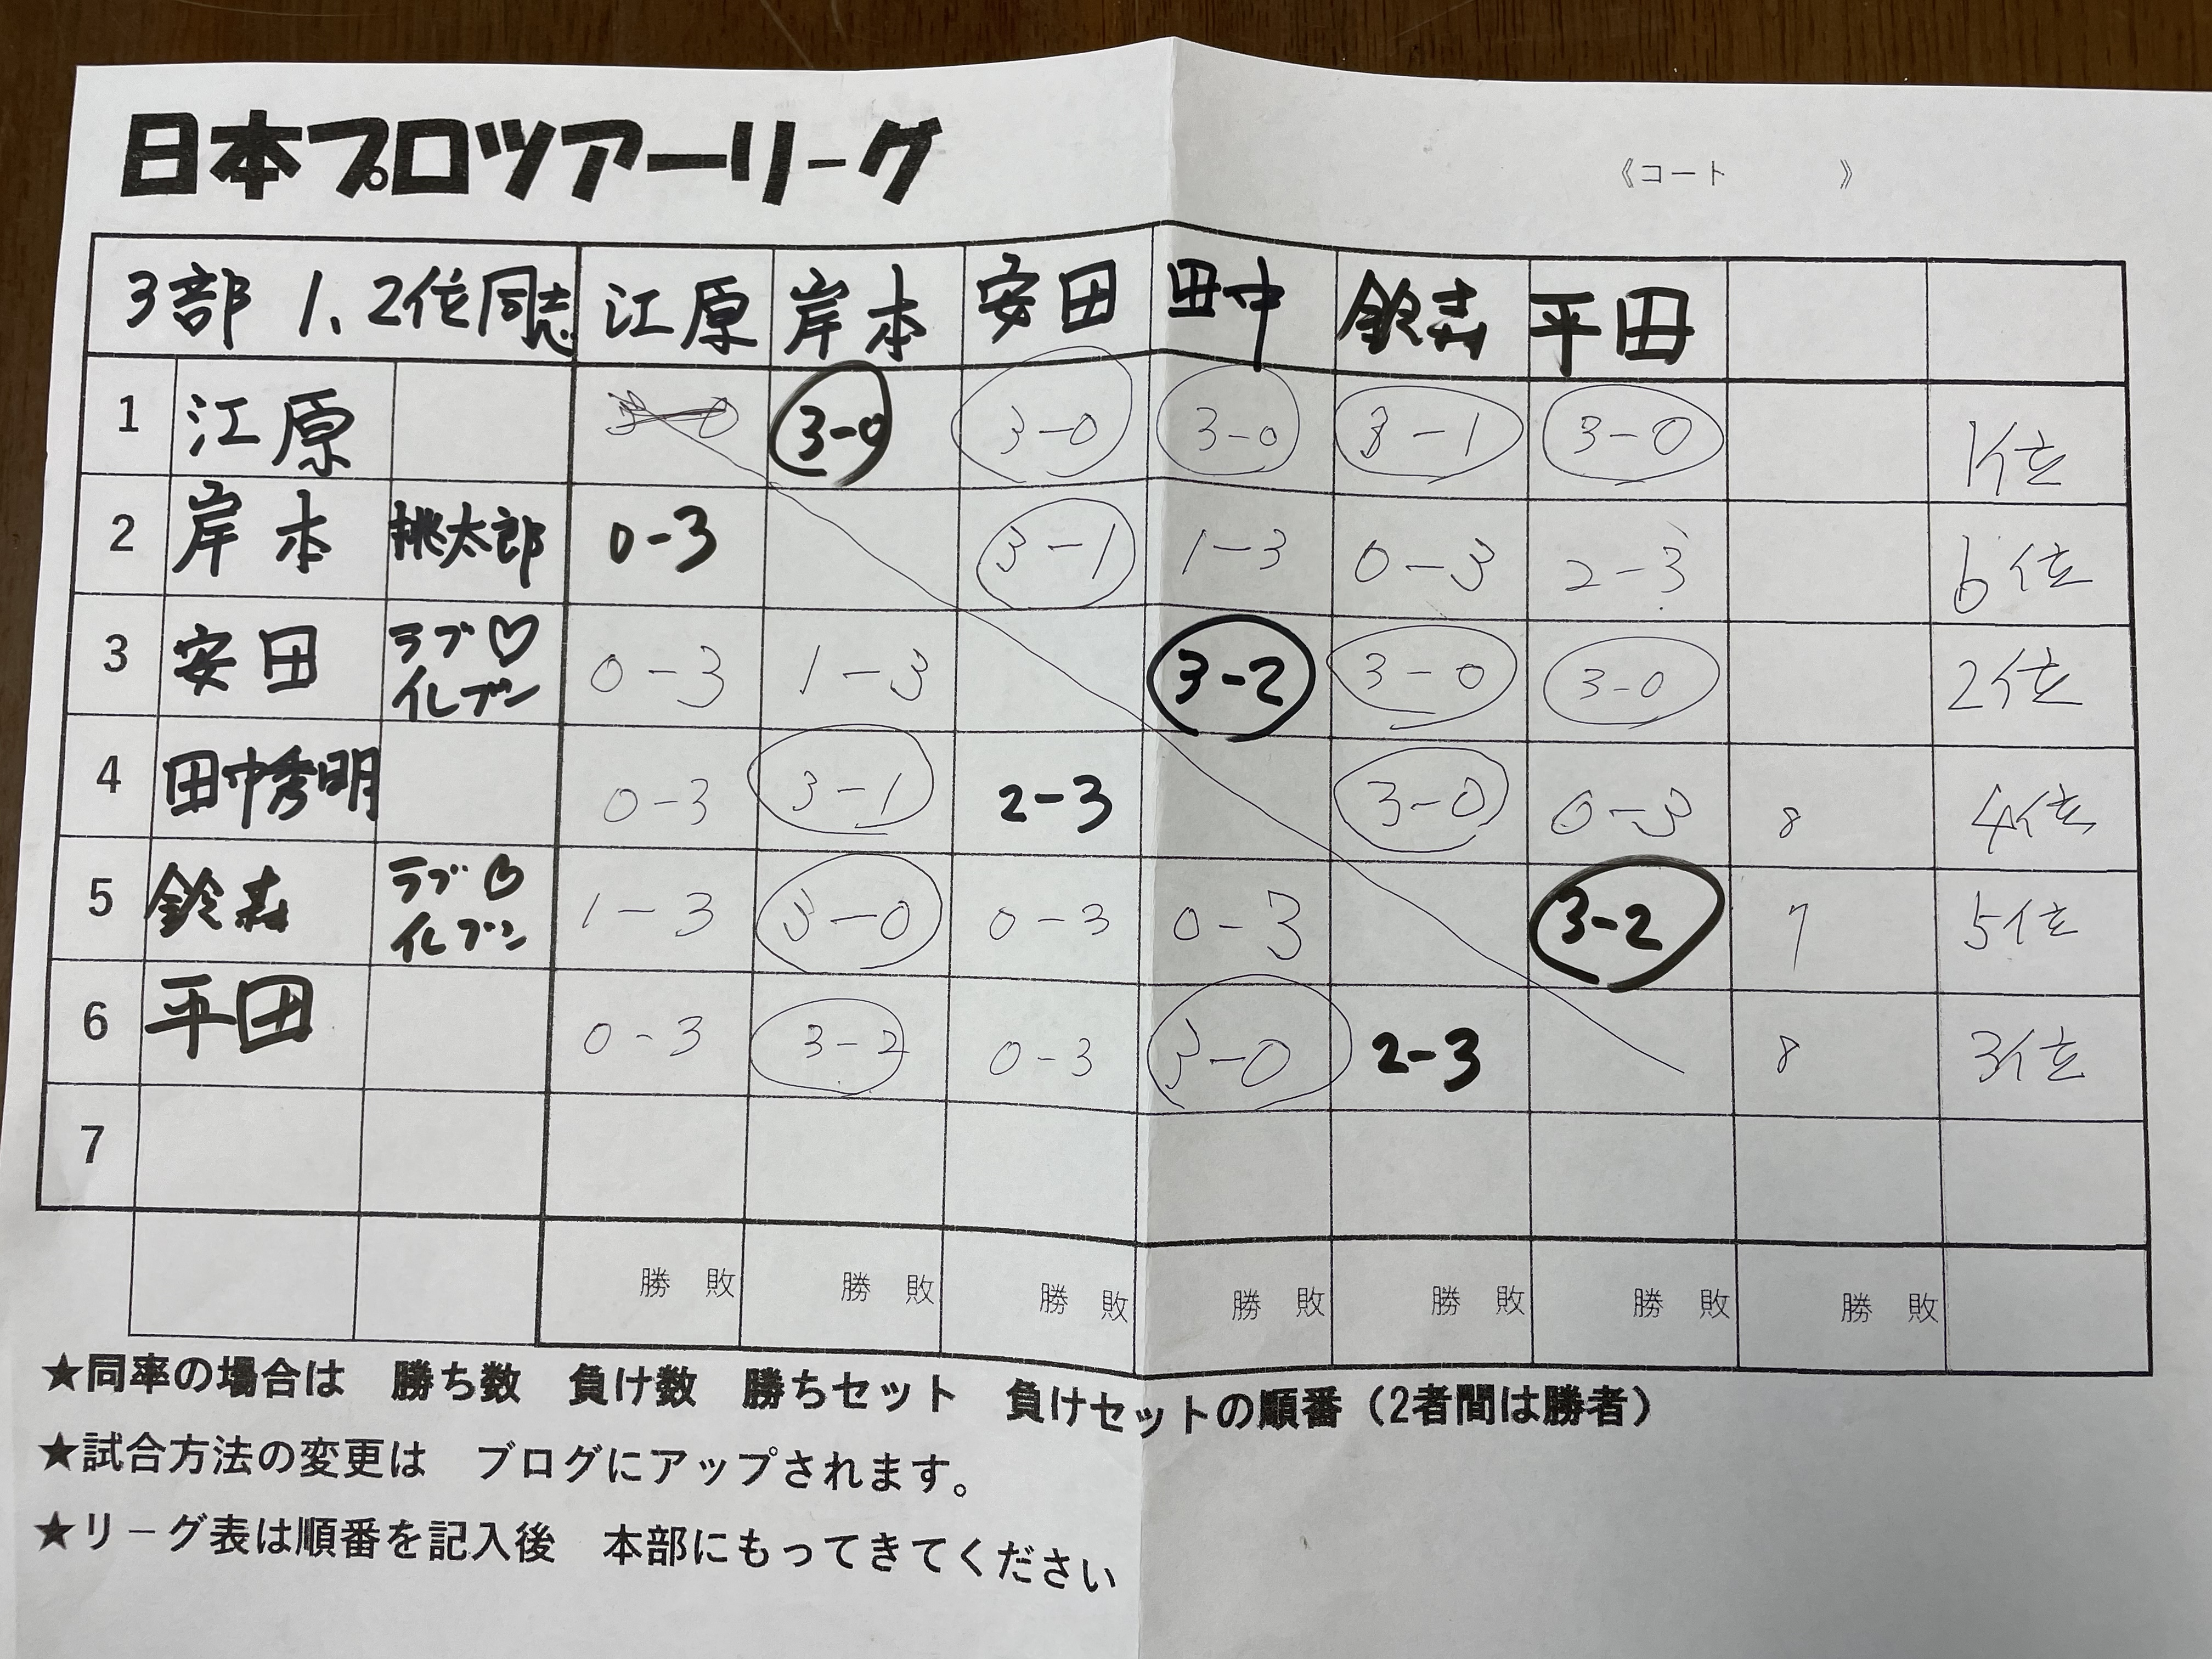 日本プロツアーリーグ
《コート　　　》
3部 1、2位同志 江原 岸本 安田 田中 鈴森 平田
1 江原 3-0 3-0 3-0 3-0 3-1 3-0 1位
2 岸本 桃太郎 0-3 3-1 1-3 0-3 2-3 6位
3 安田 ラブ♡イレブン 0-3 1-3 3-2 3-0 3-0 2位
4 田中秀明 0-3 3-1 2-3 3-0 0-3 8 4位
5 鈴森 ラブ♡イレブン 1-3 3-0 0-3 0-3 3-2 7 5位
6 平田 0-3 3-2 0-3 3-0 2-3 8 3位
7
勝 敗 勝 敗 勝 敗 勝 敗 勝 敗 勝 敗 勝 敗
★同率の場合は　勝ち数　負け数　勝ちセット　負けセットの順番（2者間は勝者）
★試合方法の変更は　ブログにアップされます。
★リーグ表は順番を記入後　本部にもってきてください